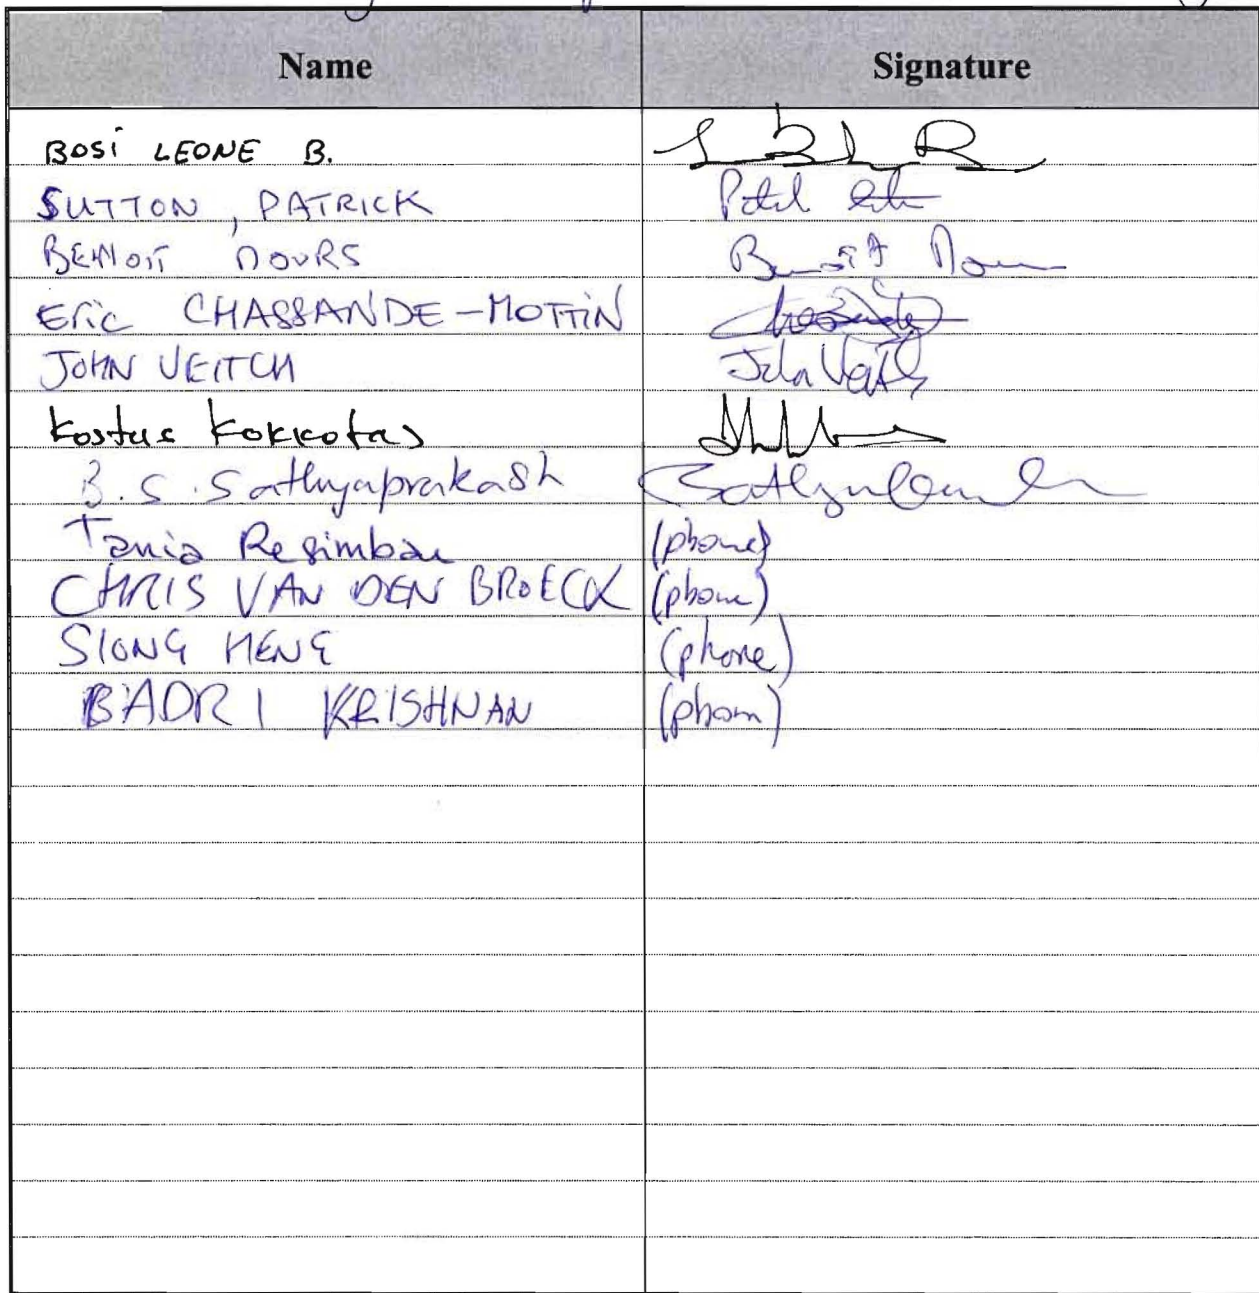 Name Signature
BOSI LEONE B.
SUTTON, PATRICK
BENOIT MOURS Benoit Mours
ERiC CHASSANDE-MOTTiN
JOHN VEITCH John Veitch
Kostas Kokkotas
B.S. Sathyaprakash
Tania Regimbau (phone)
CHRIS VAN DEN BROECK (phone)
SIONG HENG (phone)
BADRI KRISHNAN (phone)